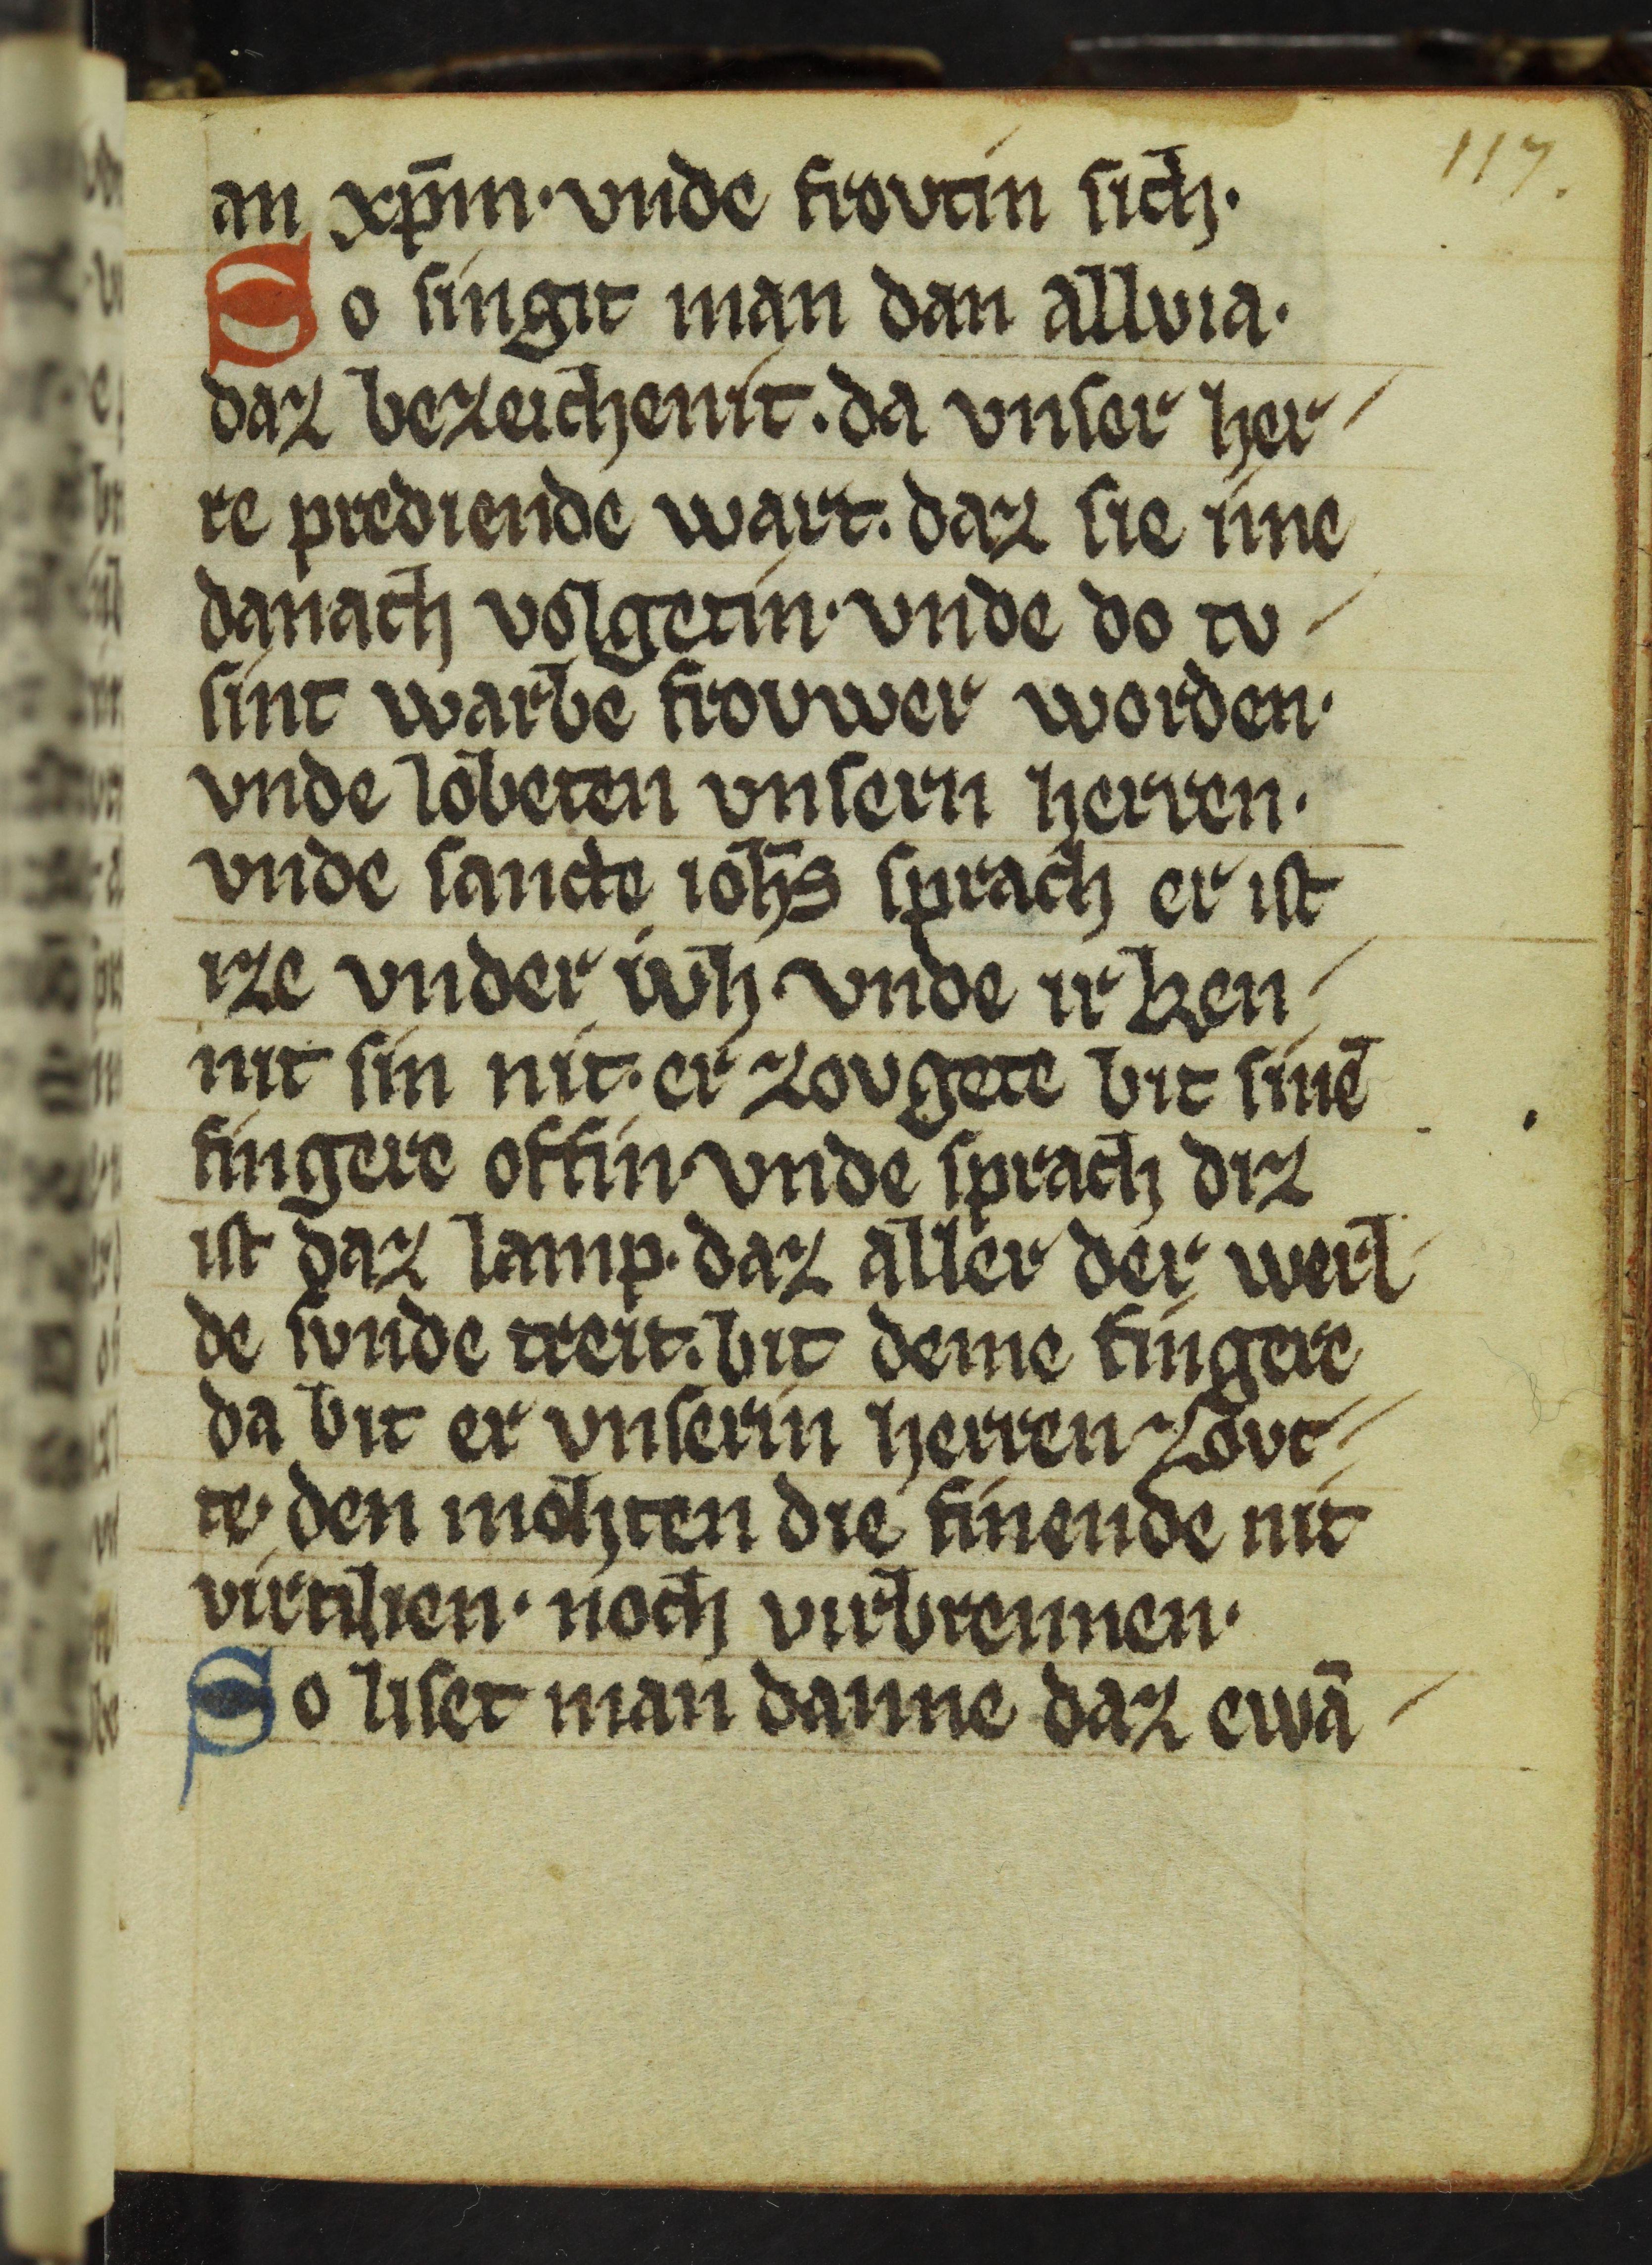 117.
an xp̄m · vnde frovtin sich ·
So singit man dan allvia ·
daz bezeichenit . da vnser her /
re prediende wart . daz sie ime
danach volgetin · vnde do tv /
sint warbe frovwer worden ·
vnde lobeten vnsern herren ·
vnde sancte ioh̄s sprach er ist
ize vnder iwh · vnde ir ken /
nit sin nit · er zovgete bit sinē
fingere offin · vnde sprach diz
ist daz lamp · daz aller der werl /
de svnde treit . bit deme fingere
da bit er vnserin herren zovt /
te · den mohten die finende nit
virtilien · noch virbrennen ·
So liset man danne daz ewā /